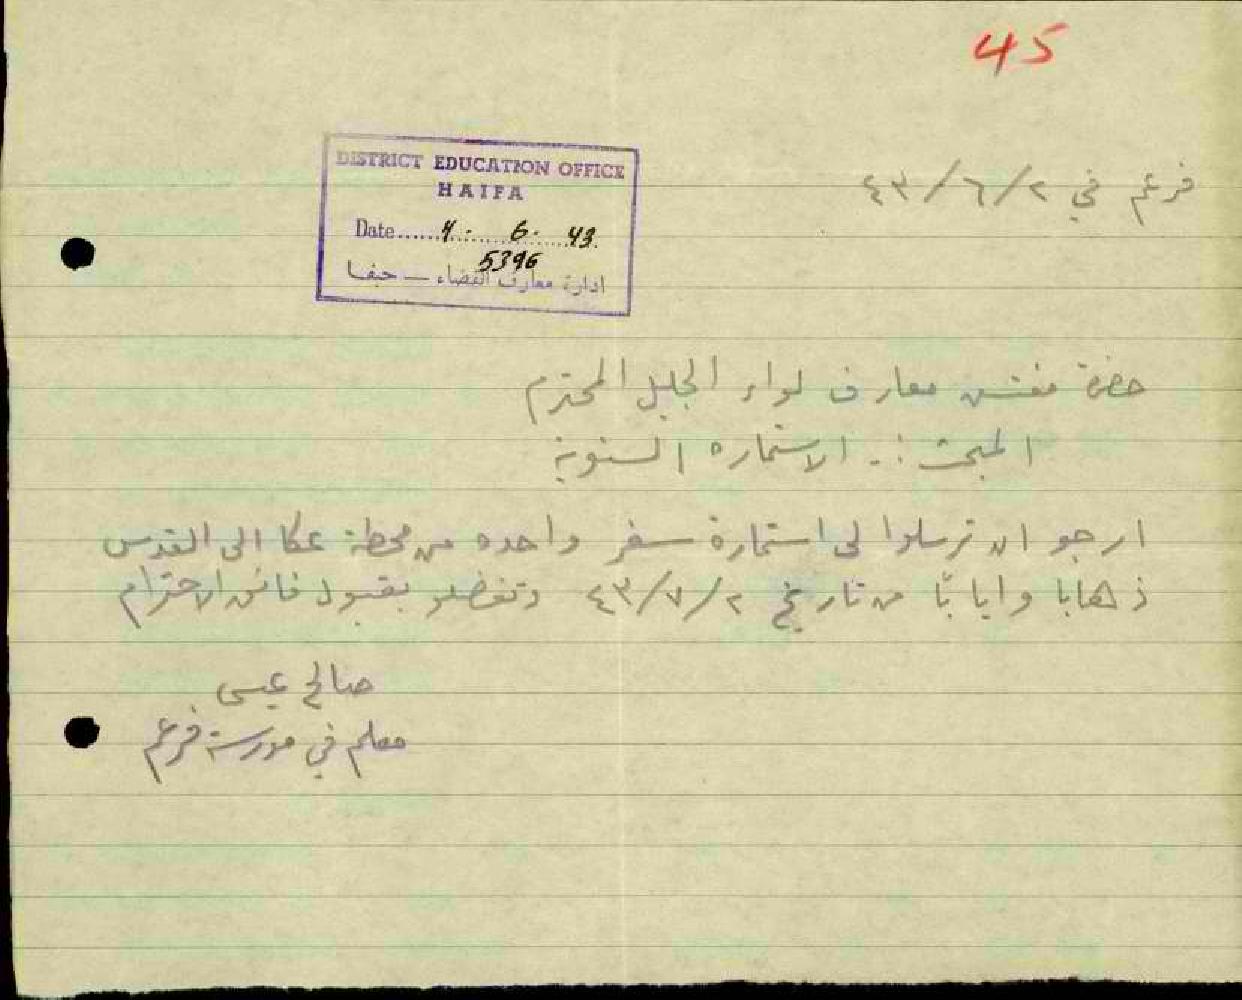 45
فرعم في ٤٣/٦/٢
DISTRICT EDUCATION OFFICE
HAIFA
Date......4.-.....6-.....43.
5396
ادارة معارف القضاء — حيفا
حضرة مفتش معارف لواء الجليل المحترم
المبحث :- الاستماره السنوية
ارجو ان ترسلوا لي استمارة سفر واحده من محطة عكا الى القدس
ذهابا وايابًا من تاريخ ٤٣/٧/٢ وتفضلو بقبول فائق الاحترام
صالح عيسى
معلم في مدرسة فرعم